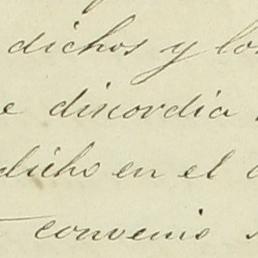 dichos y los
e discordia
dicho en el
convenio